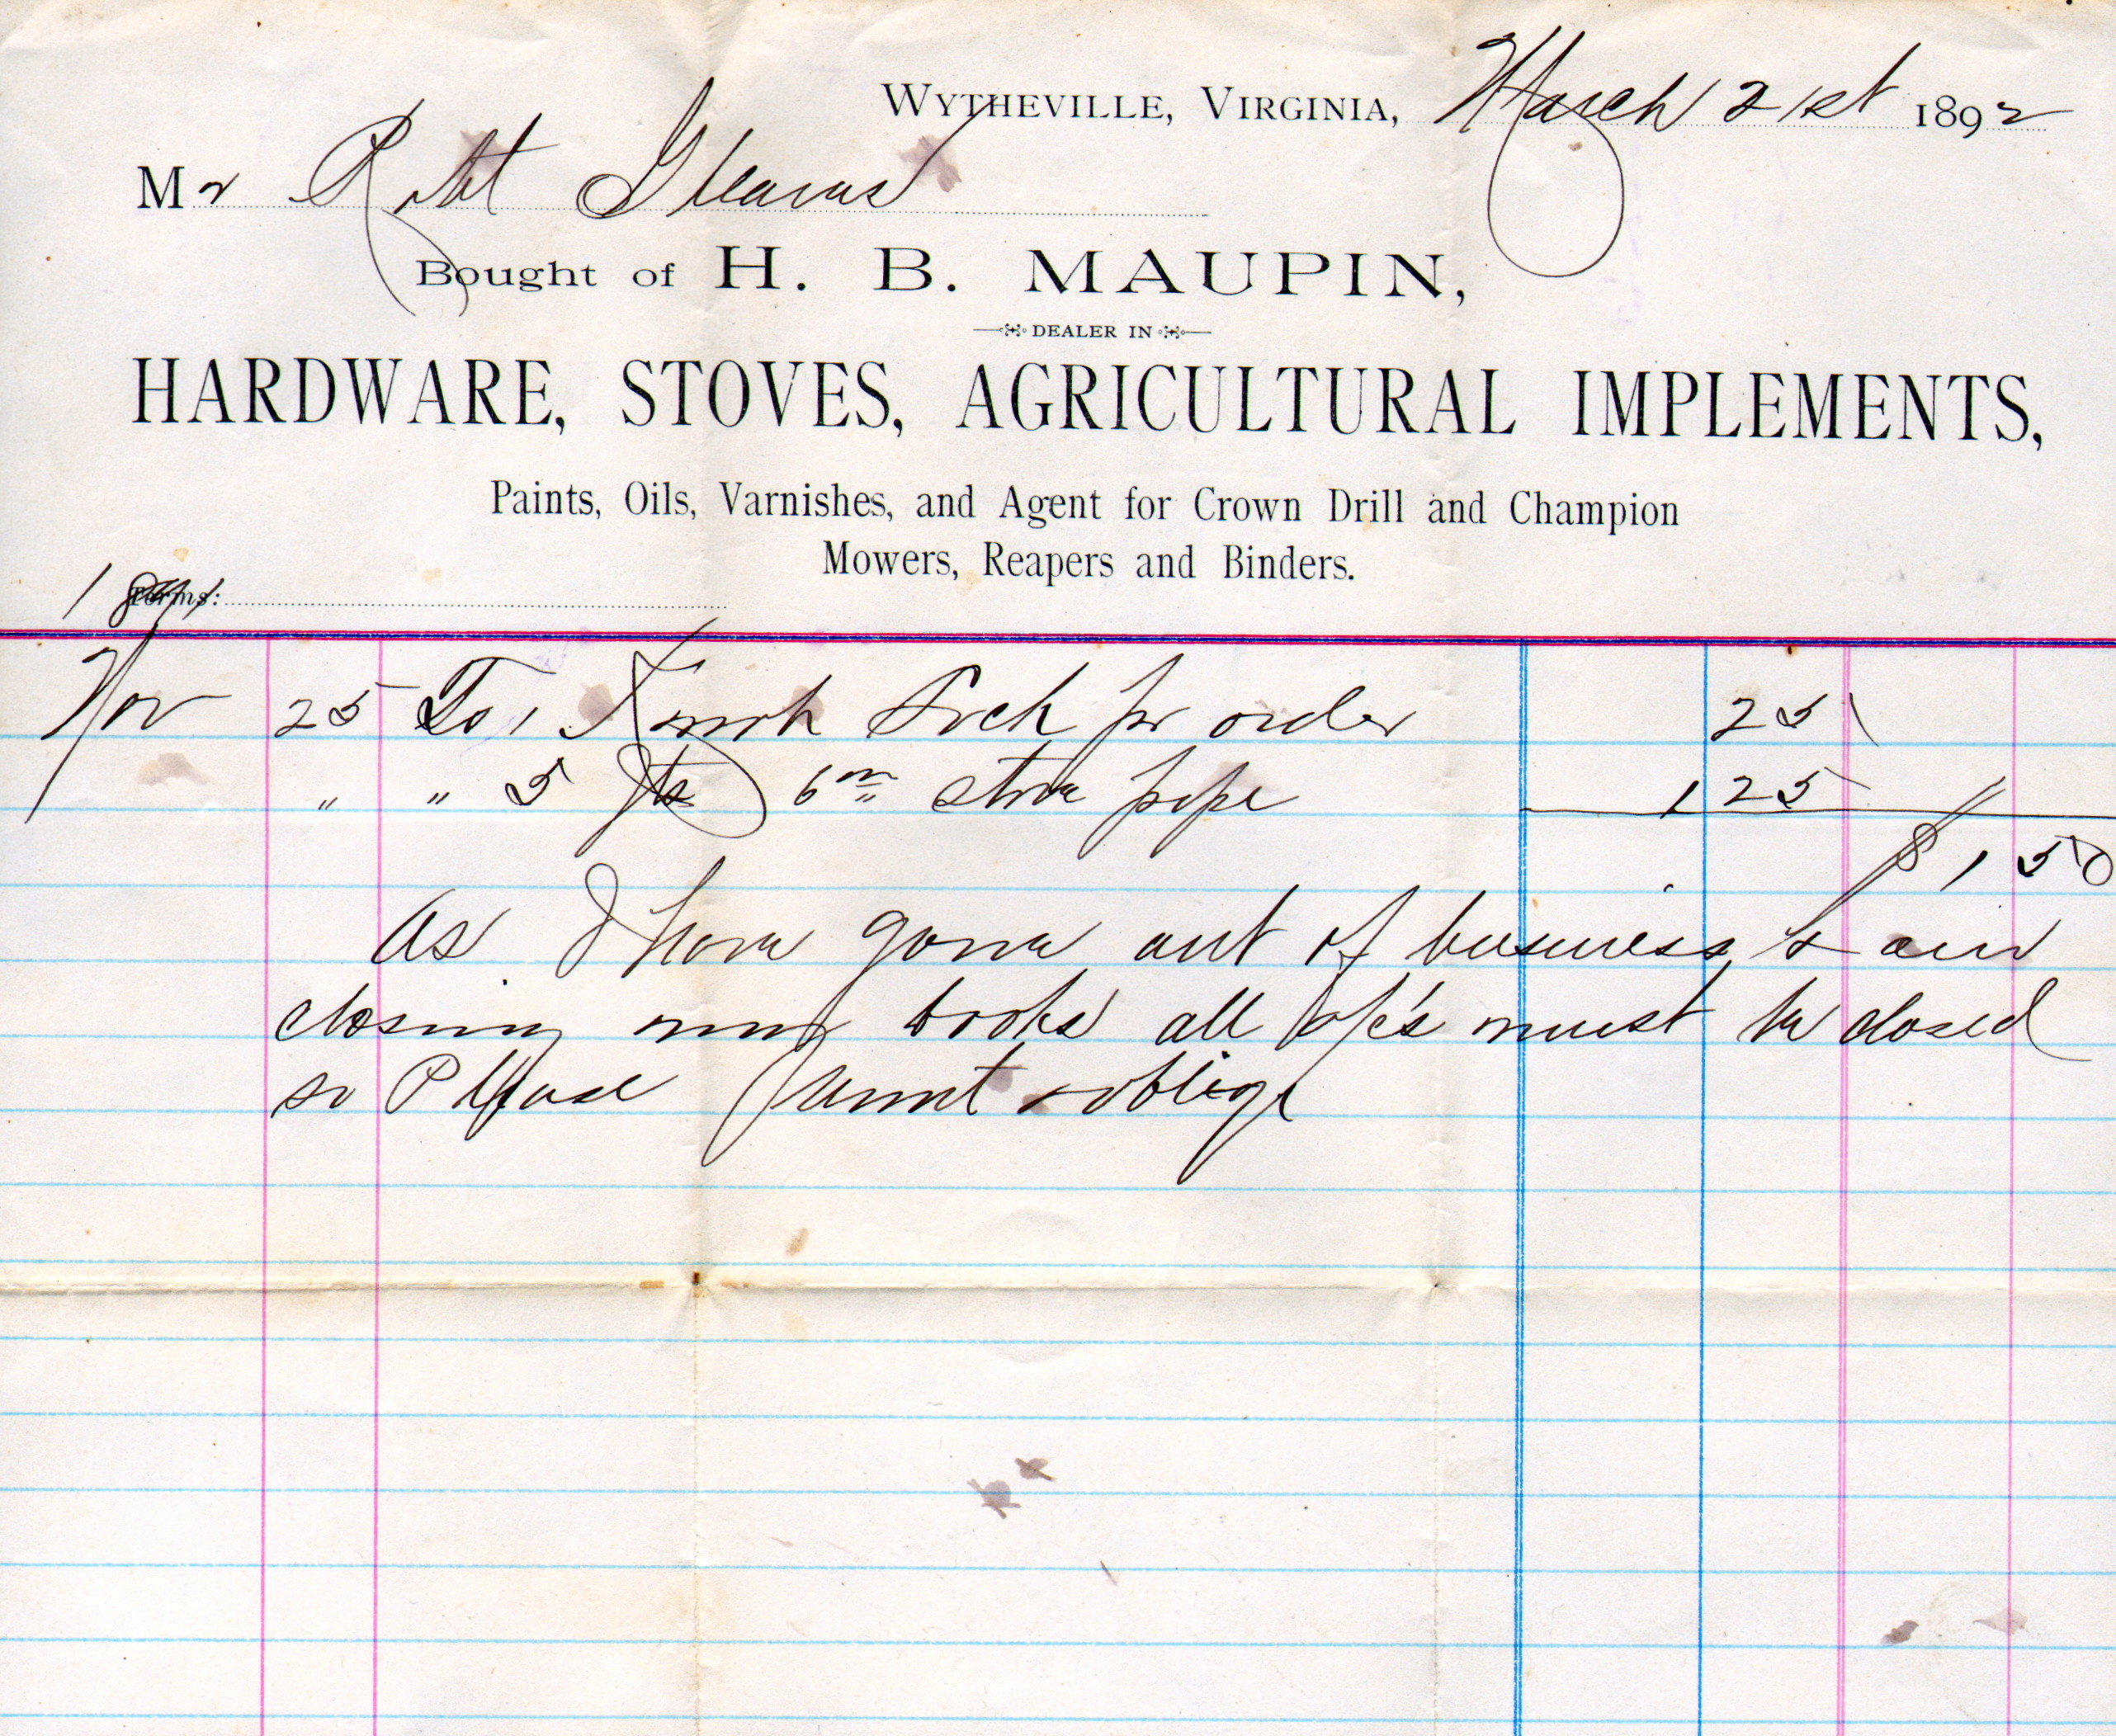 Wytheville, Virginia, March 21st 1892
Mr Robt Gleaves
Bought of H. B. MAUPIN,
DEALER IN
HARDWARE, STOVES, AGRICULTURAL IMPLEMENTS,
Paints, Oils, Varnishes, and Agent for Crown Drill and Champion
Mowers, Reapers and Binders.
1891 Terms:
Nov 25 To 1 Lock pr order 25
" " 5 Jts 6 in stove pipe 1 25
$ 1 50
As I have gone out of business & am
closing my books all a/c's must be closed
so Please remit & oblige